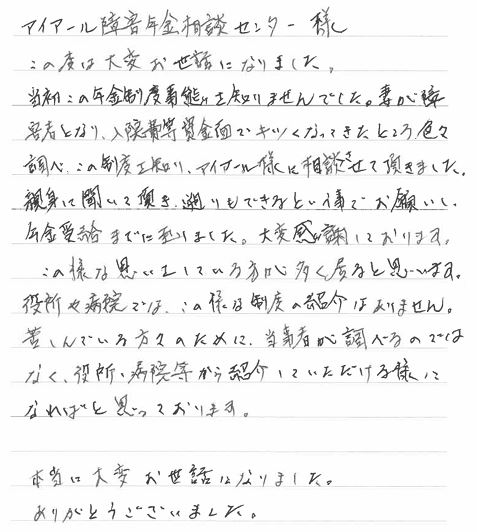 アイアール障害年金相談センター様
この度は大変お世話になりました。
当初この年金制度事態を知りませんでした。妻が障
害者となり、入院費等資金面でキツくなってきたところ色々
調べ、この制度を知り、アイアール様に相談させて頂きました。
親身に聞いて頂き、遡りもできるという事でお願いし、
年金受給までに至りました。大変感謝しております。
この様な思いをしている方が多く居ると思います。
役所や病院では、この様な制度の紹介はありません。
苦しんでいる方々のために、当事者が調べるのでは
なく、役所・病院等から紹介していただける様に
なればと思っております。
本当に大変お世話になりました。
ありがとうございました。